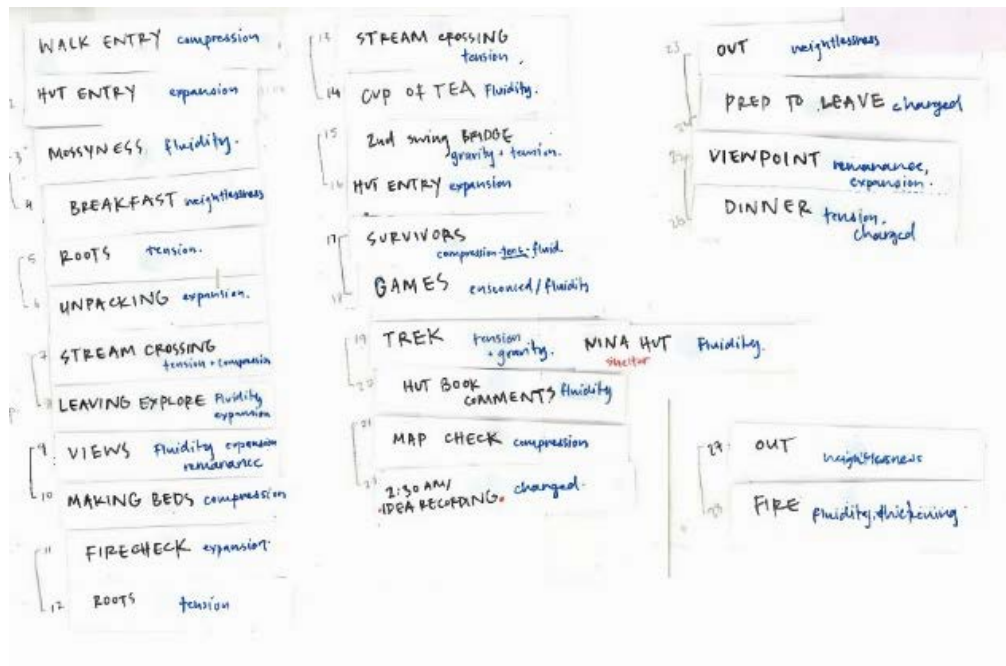 WALK ENTRY compression
HUT ENTRY expansion
3 MOSSYNESS, fluidity.
4 BREAKFAST weightlessness
5 ROOTS tension.
6 UNPACKING expansion.
7 STREAM CROSSING
tension + compression
8 LEAVING EXPLORE Fluidity
expansion
9 VIEWS Fluidity expansion
remanance
10 MAKING BEDS compression
11 FIRECHECK expansion.
12 ROOTS tension
13 STREAM CROSSING
tension.
14 CUP OF TEA Fluidity.
15 2nd swing BRIDGE
gravity + tension.
16 HUT ENTRY expansion
17 SURVIVORS
compression - tens - fluid.
18 GAMES ensconced/fluidity
19 TREK tension
+ gravity.
NINA HUT Fluidity.
shelter
HUT BOOK
COMMENTS fluidity
21 MAP CHECK compression
2:30 AM/
IDEA RECORDING. charged.
23 OUT weightlessness
PREP TO LEAVE charged
VIEWPOINT remanance,
expansion.
DINNER tension,
charged
OUT weightlessness
FIRE fluidity, thickening.